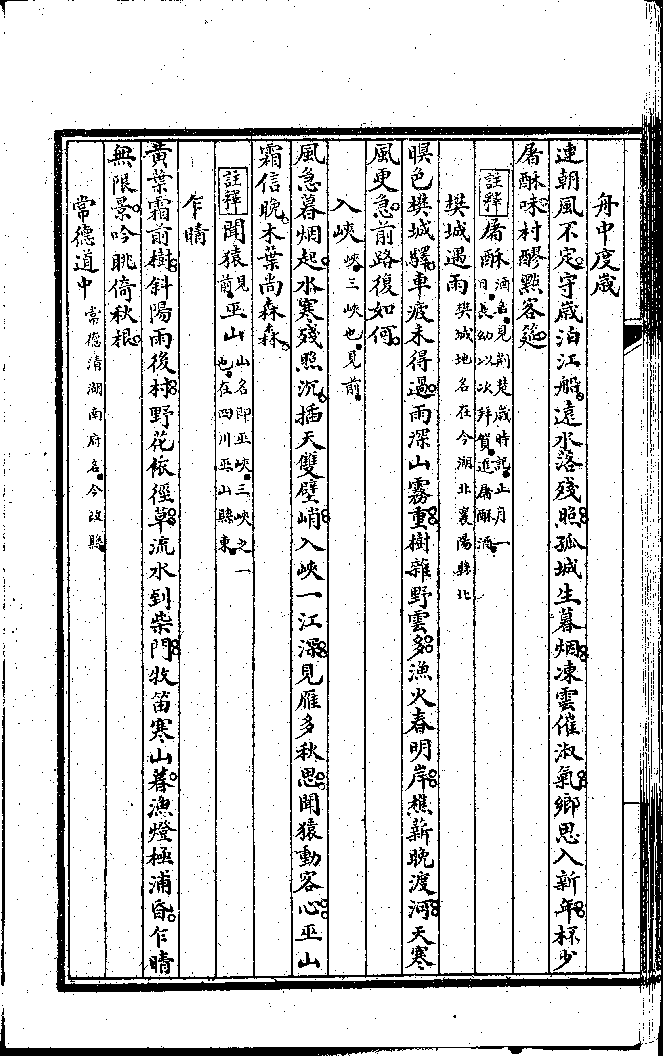 舟中度歲
連朝風不定守歲泊江船遠水落殘照孤城生暮烟凍雲催淑氣鄉思入新年杯少
屠酥味村醪㸃客筵
註釋 屠酥 酒名見荆楚歲時記正月一日長幼以次拜賀進屠酥酒
樊城遇雨 樊城地名在今湖北襄陽縣北
暝色樊城驛車疲未得過雨深山霧重樹雜野雲多漁火春明岸樵薪晚渡河天寒
風更急前路復如何
入峽 峽三峽也見前
風急暮烟起水寒殘照沉插天雙壁峭入峽一江深見雁多秋思聞猿動客心巫山
霜信晚木葉尚森森
註釋 聞猿 見前 巫山 山名即巫峽三峽之一也在四川巫山縣東
乍晴
黃葉霜前樹斜陽雨後村野花依徑草流水到柴門牧笛寒山暮漁燈極浦昏乍晴
無限景吟眺倚秋根
常德道中 常德清湖南府名今改縣